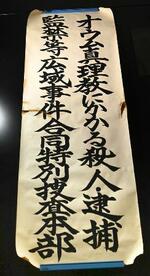 オウム真理教にかかる殺人・逮捕
監禁等広域事件合同特別捜査本部